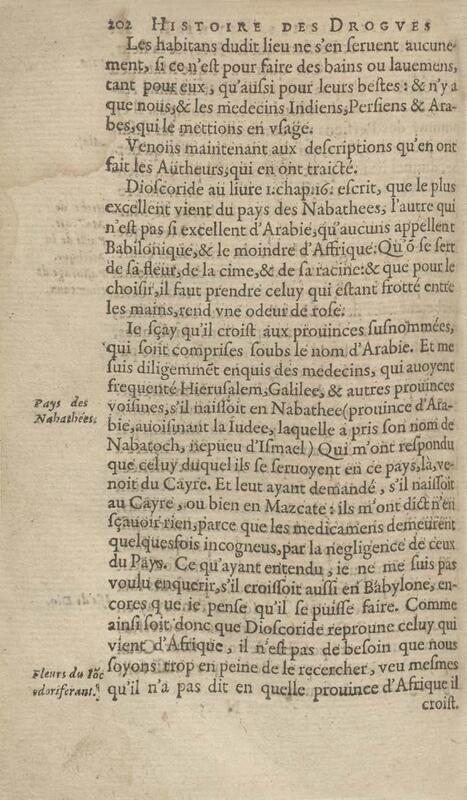 202 HISTOIRE DES DROGVES
Les habitans dudit lieu ne s'en ſeruent aucune-
ment, ſi ce n'eſt pour faire des bains ou lauemens,
tant pour eux, qu'auſsi pour leurs beſtes: & n'y a
que nous, & les medecins Indiens, Perſiens & Ara-
bes, qui le mettions en vſage.
Venons maintenant aux deſcriptions qu'en ont
fait les Autheurs, qui en ont traicté.
Dioſcoride au liure 1. chap. 16. eſcrit, que le plus
excellent vient du pays des Nabathees, l'autre qui
n'eſt pas ſi excellent d'Arabie, qu'aucuns appellent
Babilonique, & le moindre d'Affrique: Qu'õ ſe ſert
de ſa fleur, de la cime, & de ſa racine: & que pour le
choiſir, il faut prendre celuy qui eſtant frotté entre
les mains, rend vne odeur de roſe.
Ie ſçay qu'il croiſt aux prouinces ſuſnommées,
qui ſont compriſes ſoubs le nom d'Arabie. Et me
ſuis diligemmẽt enquis des medecins, qui auoyent
frequenté Hieruſalem, Galilee, & autres prouinces
Pays des
Nabathées.
voiſines, s'il naiſſoit en Nabathee (prouince d'Ara-
bie, auoiſinant la Iudee, laquelle à pris ſon nom de
Nabatoch, nepueu d'Iſmael) Qui m'ont reſpondu
que celuy duquel ils ſe ſeruoyent en ce pays, là, ve-
noit du Cayre. Et leut ayant demandé, s'il naiſſoit
au Cayre, ou bien en Mazcate: ils m'ont dict n'en
ſçauoir rien, parce que les medicamens demeurent
quelquesfois incogneus, par la negligence de ceux
du Pays. Ce qu'ayant entendu, ie ne me ſuis pas
voulu enquerir, s'il croiſſoit auſsi en Babylone, en-
cores que ie penſe qu'il ſe puiſſe faire. Comme
ainſi ſoit donc que Dioſcoride reproune celuy qui
vient d'Afrique, il n'eſt pas de beſoin que nous
Fleurs du Iõc
odoriferant.
ſoyons trop en peine de le recercher, veu meſmes
qu'il n'a pas dit en quelle prouince d'Afrique il
croiſt.